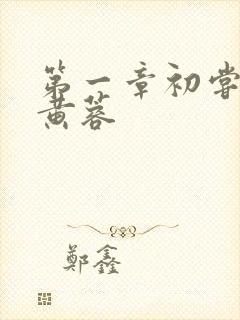 第一章初尝
黄蓉
郑鑫